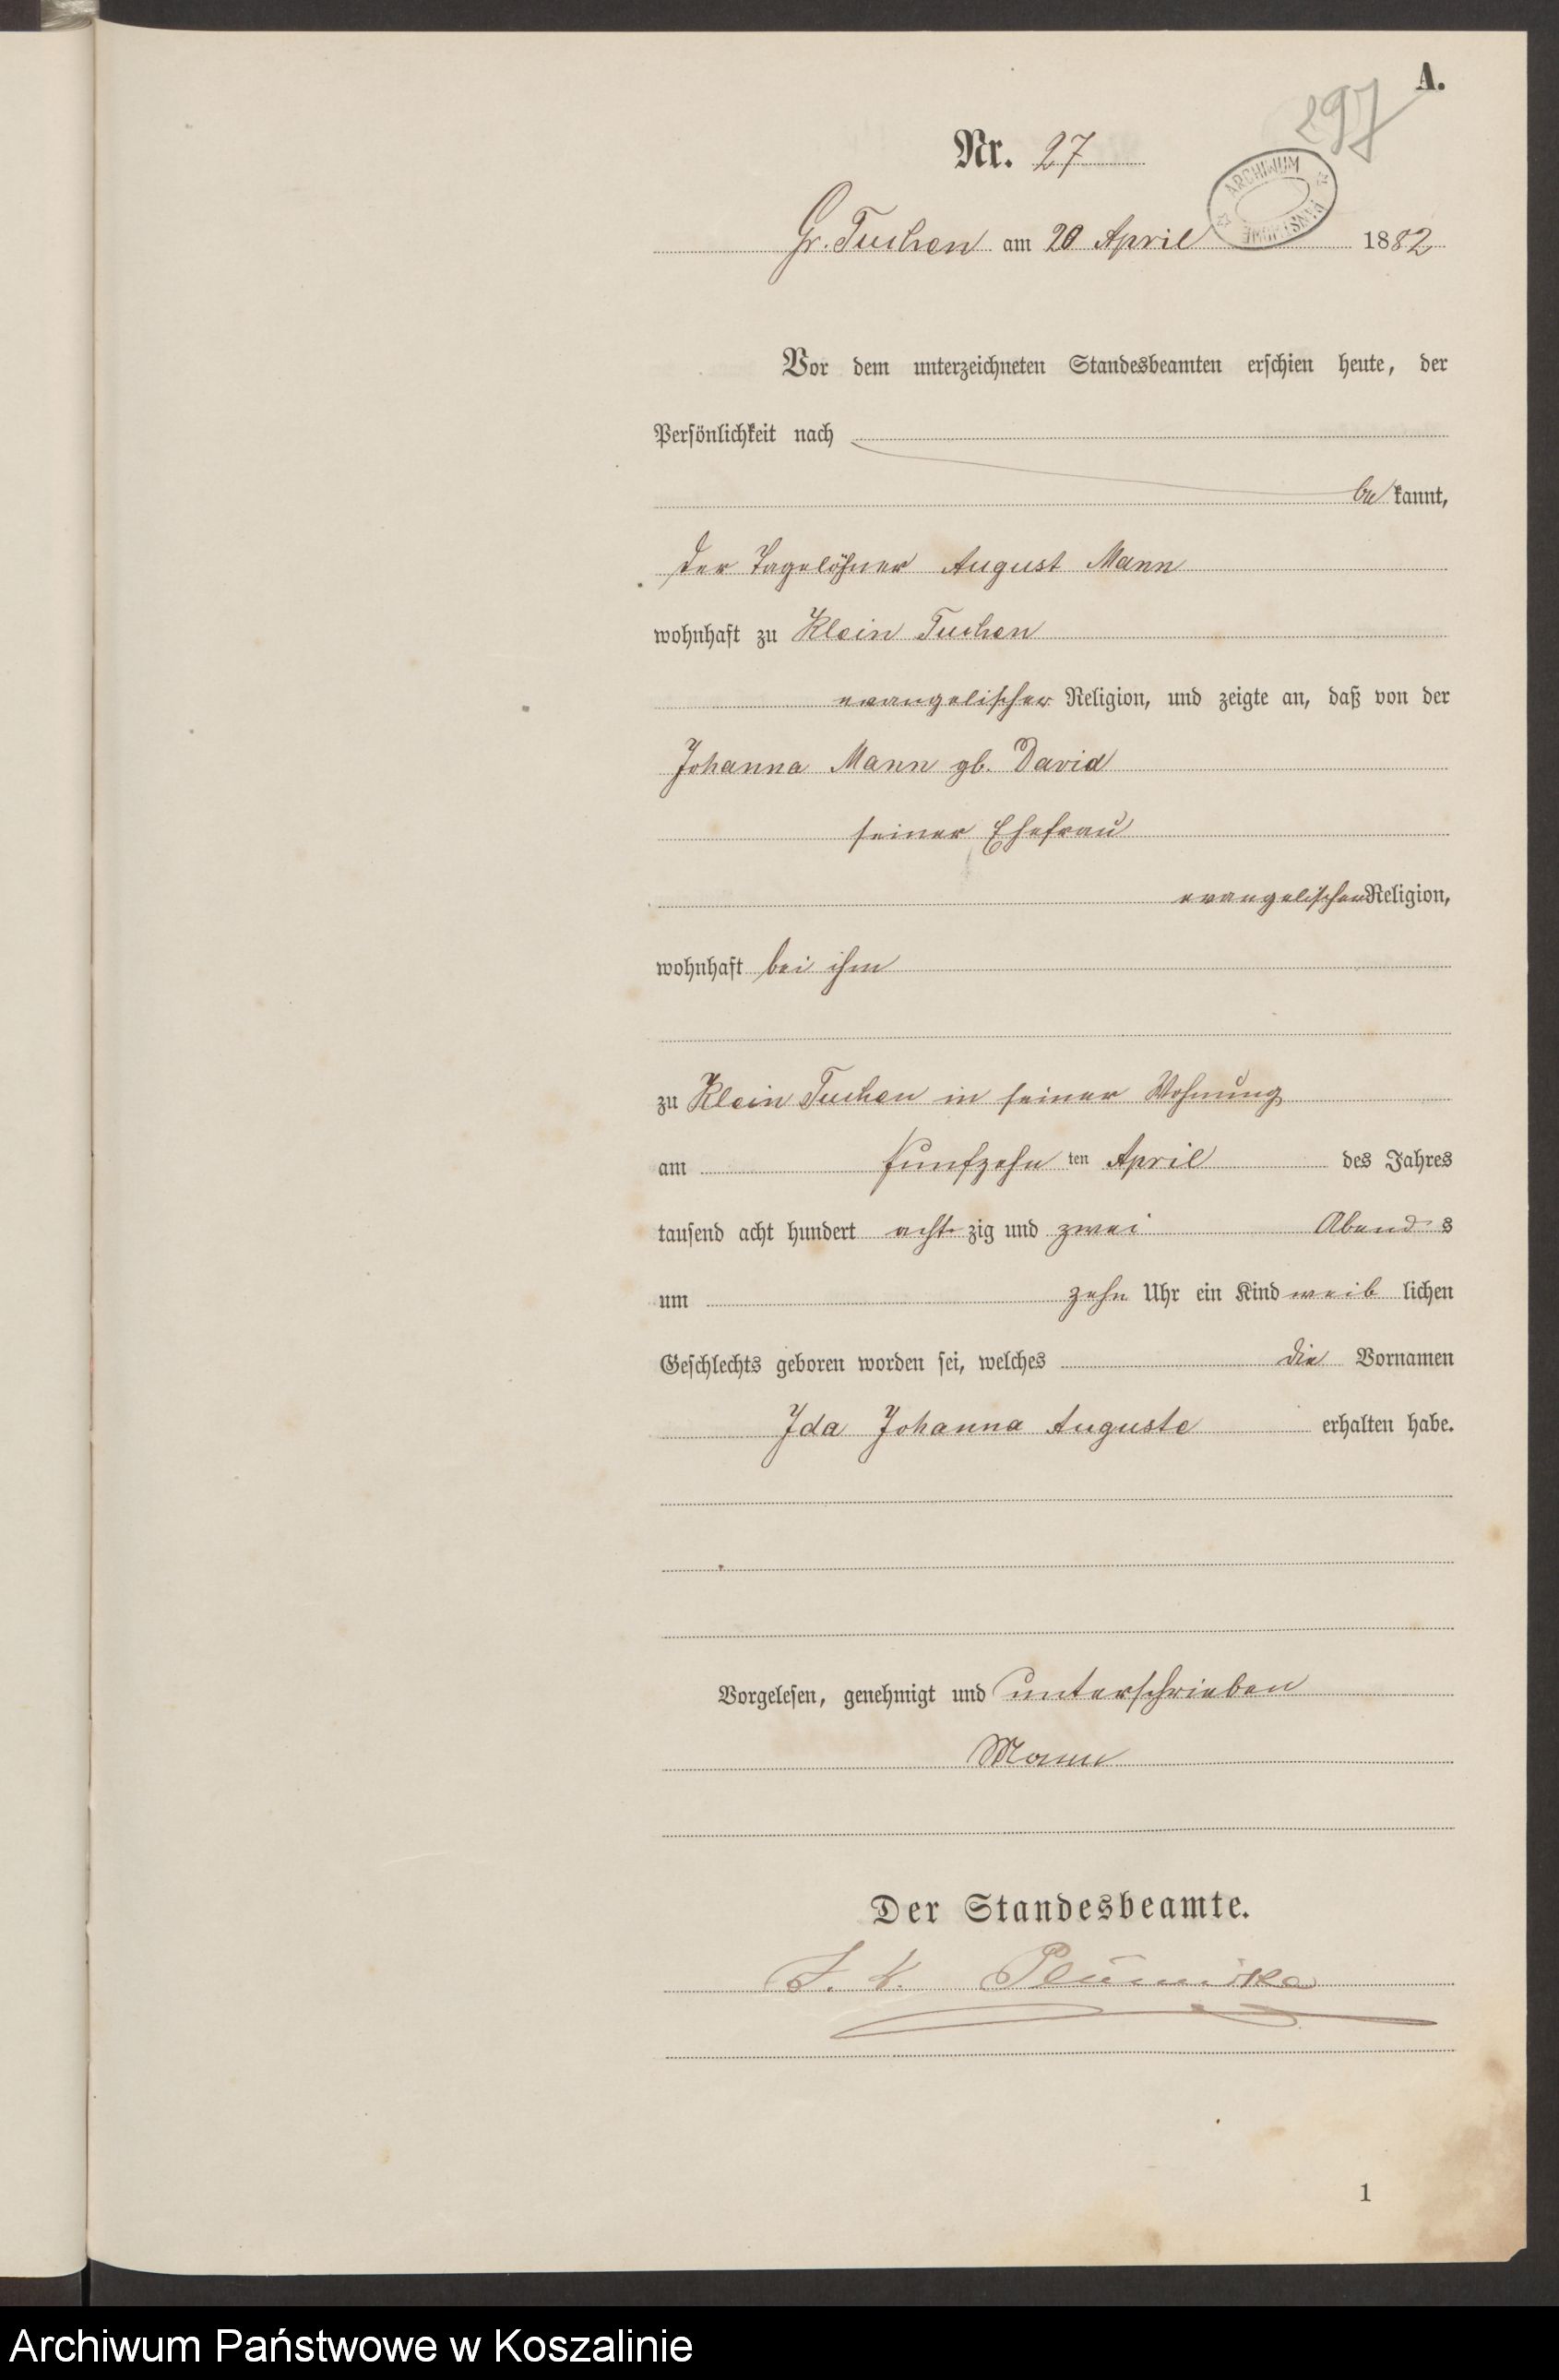 A.
297
Nr. 27
ARCHIWUM PAŃSTWOWE
Gr. Tuchen am 20 April 1882
Vor dem unterzeichneten Standesbeamten erschien heute, der
Persönlichkeit nach
be kannt,
der Tagelöhner August Mann
wohnhaft zu Klein Tuchen
evangelischer Religion, und zeigte an, daß von der
Johanna Mann gb. David
seiner Ehefrau
evangelischer Religion,
wohnhaft bei ihm
zu Klein Tuchen in seiner Wohnung
am fünfzehn ten April des Jahres
tausend acht hundert acht zig und zwei Abend s
um zehn Uhr ein Kind weib lichen
Geschlechts geboren worden sei, welches die Vornamen
Ida Johanna Auguste erhalten habe.
Vorgelesen, genehmigt und unterschrieben
Mann
Der Standesbeamte.
1
Archiwum Państwowe w Koszalinie